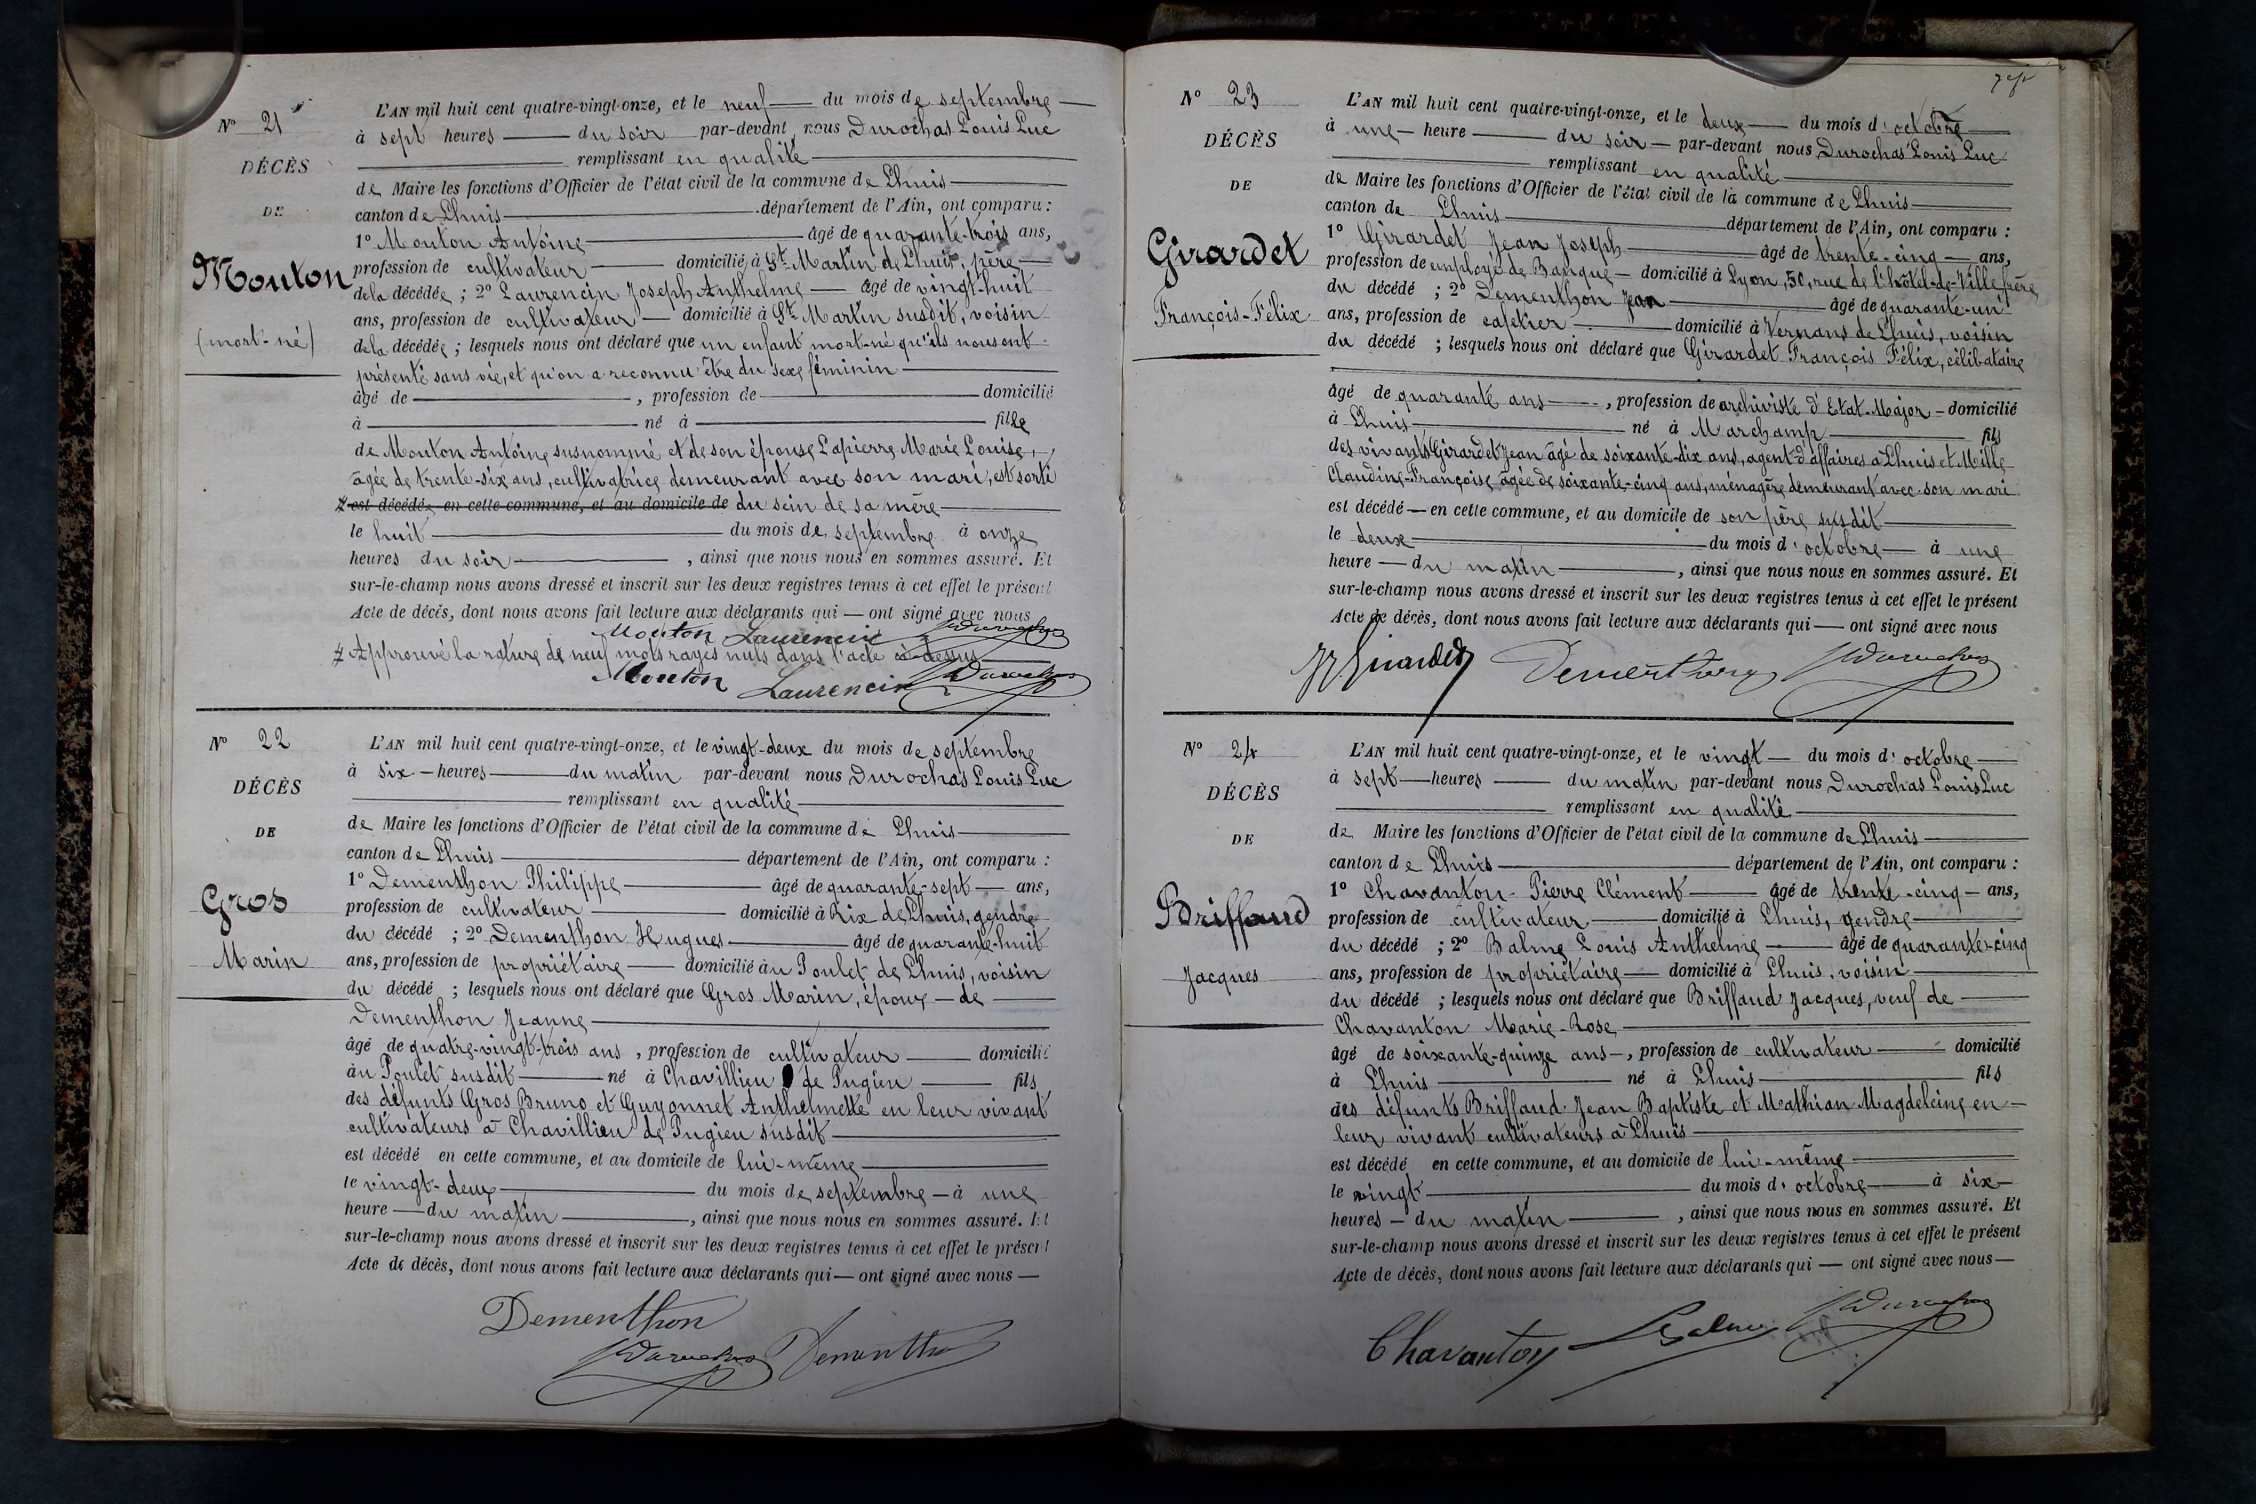 N° 21
DÉCÈS
DE
Mouton
(mort-né)
L'AN mil huit cent quatre-vingt-onze, et le neuf du mois de septembre
à sept heures du soir par-devant nous Durochas Louis Luc
remplissant en qualité
de Maire les fonctions d'Officier de l'état civil de la commune de Lhuis
canton de Lhuis département de l'Ain, ont comparu :
1° Mouton Antoine âgé de quarante-trois ans,
profession de cultivateur domicilié à St-Martin de Lhuis, père
de la décédée ; 2° Laurencin Joseph Anthelme âgé de vingt-huit
ans, profession de cultivateur domicilié à St Martin susdit, voisin
de la décédée ; lesquels nous ont déclaré que un enfant mort-né qu'ils nous ont
présenté sans vie, et qu'on a reconnu être du sexe féminin
âgé de , profession de domicilié
à né à fille
de Mouton Antoine susnommé et de son épouse Lapierre Marie Louise,
âgée de trente-six ans, cultivatrice demeurant avec son mari, est sorti
est décédée en cette commune, et au domicile de du sein de sa mère
le huit du mois de septembre à onze
heures du soir , ainsi que nous nous en sommes assuré. Et
sur-le-champ nous avons dressé et inscrit sur les deux registres tenus à cet effet le présent
Acte de décès, dont nous avons fait lecture aux déclarants qui — ont signé avec nous
Mouton Laurencin Durochas
Approuvé la rature de neuf mots rayés nuls dans l'acte ci-dessus
Mouton Laurencin Durochas
N° 22
DÉCÈS
DE
Gros
Marin
L'AN mil huit cent quatre-vingt-onze, et le vingt-deux du mois de septembre
à six — heures du matin par-devant nous Durochas Louis Luc
remplissant en qualité
de Maire les fonctions d'Officier de l'état civil de la commune de Lhuis
canton de Lhuis département de l'Ain, ont comparu :
1° Dementhon Philippe âgé de quarante-sept ans,
profession de cultivateur domicilié à Rix de Lhuis, gendre
du décédé ; 2° Dementhon Hugues âgé de quarante-huit
ans, profession de propriétaire domicilié au Poulet de Lhuis, voisin
du décédé ; lesquels nous ont déclaré que Gros Marin, époux — de
Dementhon Jeanne
âgé de quatre-vingt-trois ans , profession de cultivateur domicilié
au Poulet susdit né à Chavillieu de Pugieu fils
des défunts Gros Bruno et Guyonnet Anthelmette en leur vivant
cultivateurs à Chavillieu de Pugieu susdit
est décédé en cette commune, et au domicile de lui-même
le vingt-deux du mois de septembre — à une
heure — du matin , ainsi que nous nous en sommes assuré. Et
sur-le-champ nous avons dressé et inscrit sur les deux registres tenus à cet effet le présent
Acte de décès, dont nous avons fait lecture aux déclarants qui — ont signé avec nous —
Dementhon
Durochas Dementhon
N° 23
DÉCÈS
DE
Girardet
François-Félix
L'AN mil huit cent quatre-vingt-onze, et le deux du mois d'octobre
à une — heure du soir — par-devant nous Durochas Louis Luc
remplissant en qualité
de Maire les fonctions d'Officier de l'état civil de la commune de Lhuis
canton de Lhuis département de l'Ain, ont comparu :
1° Girardet Jean Joseph âgé de trente-cinq — ans,
profession de employé de Banque — domicilié à Lyon, 50, rue de l'hôtel-de-Ville, frère
du décédé ; 2° Dementhon Jean âgé de quarante-un
ans, profession de cafetier domicilié à Vernans de Lhuis, voisin
du décédé ; lesquels nous ont déclaré que Girardet François Félix, célibataire
âgé de quarante ans , profession de archiviste d'Etat-Major — domicilié
à Lhuis né à Marchamp fils
des vivants Girardet Jean âgé de soixante-dix ans, agent d'affaires à Lhuis et Mille
Claudine-Françoise âgée de soixante-cinq ans, ménagère demeurant avec son mari
est décédé — en cette commune, et au domicile de son père susdit
le deux du mois d'octobre — à une
heure — du matin , ainsi que nous nous en sommes assuré. Et
sur-le-champ nous avons dressé et inscrit sur les deux registres tenus à cet effet le présent
Acte de décès, dont nous avons fait lecture aux déclarants qui — ont signé avec nous
JJ Girardet Dementhon Durochas
N° 24
DÉCÈS
DE
Briffaud
Jacques
L'AN mil huit cent quatre-vingt-onze, et le vingt — du mois d'octobre
à sept — heures du matin par-devant nous Durochas Louis Luc
remplissant en qualité
de Maire les fonctions d'Officier de l'état civil de la commune de Lhuis
canton de Lhuis département de l'Ain, ont comparu :
1° Chavanton Pierre Clément âgé de trente-cinq — ans,
profession de cultivateur domicilié à Lhuis, gendre
du décédé ; 2° Balme Louis Anthelme âgé de quarante-cinq
ans, profession de propriétaire domicilié à Lhuis, voisin
du décédé ; lesquels nous ont déclaré que Briffaud Jacques, veuf de
Chavanton Marie-Rose
âgé de soixante-quinze ans —, profession de cultivateur domicilié
à Lhuis né à Lhuis fils
des défunts Briffaud Jean Baptiste et Mathian Magdeleine, en
leur vivant cultivateurs à Lhuis
est décédé en cette commune, et au domicile de lui-même
le vingt du mois d'octobre à six
heures — du matin , ainsi que nous nous en sommes assuré. Et
sur-le-champ nous avons dressé et inscrit sur les deux registres tenus à cet effet le présent
Acte de décès, dont nous avons fait lecture aux déclarants qui — ont signé avec nous —
Chavanton Balme Durochas